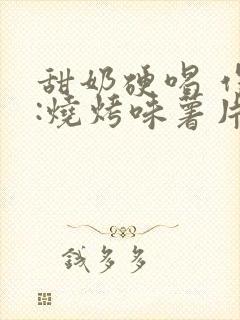 甜奶硬唱
:燒烤味薯片
錢多多